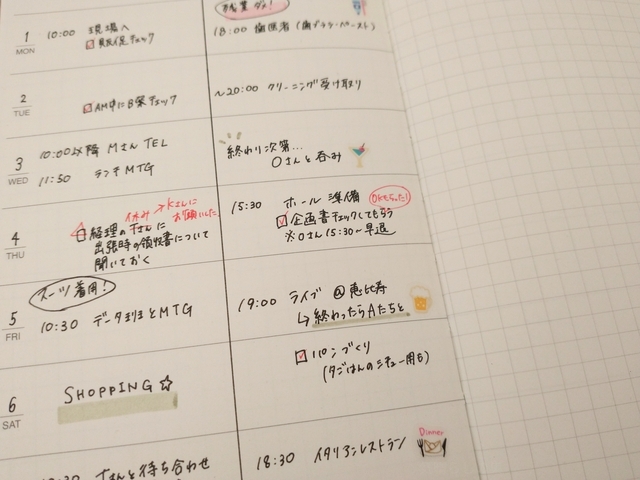 残業ダメ!
1
MON
10:00 現場へ
販促チェック
18:00 歯医者(歯ブラシ・ペースト)
2
TUE
AM中にB案チェック
〜20:00 クリーニング受け取り
3
WED
10:00以降 MさんTEL
11:50 ランチMTG
終わり次第…
Oさんと呑み
4
THU
休み→Kさんに
お願いした
経理のTさんに
出張時の領収書について
聞いておく
15:30 ホール準備
OKもらった!
企画書チェックしてもらう
※Oさん15:30〜早退
5
FRI
スーツ着用!
10:30 データ班とMTG
19:00 ライブ@恵比寿
↳終わったらAたちと
6
SAT
SHOPPING☆
パンづくり
(夕ごはんのシチュー用も)
さんと待ち合わせ
18:30 イタリアンレストラン
Dinner